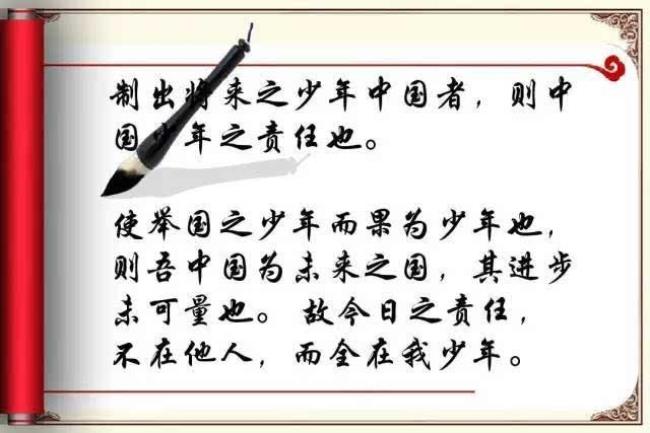 制出将来之少年中国者，则中
国少年之责任也。
使举国之少年而果为少年也，
则吾中国为未来之国，其进步
未可量也。 故今日之责任，
不在他人，而全在我少年。